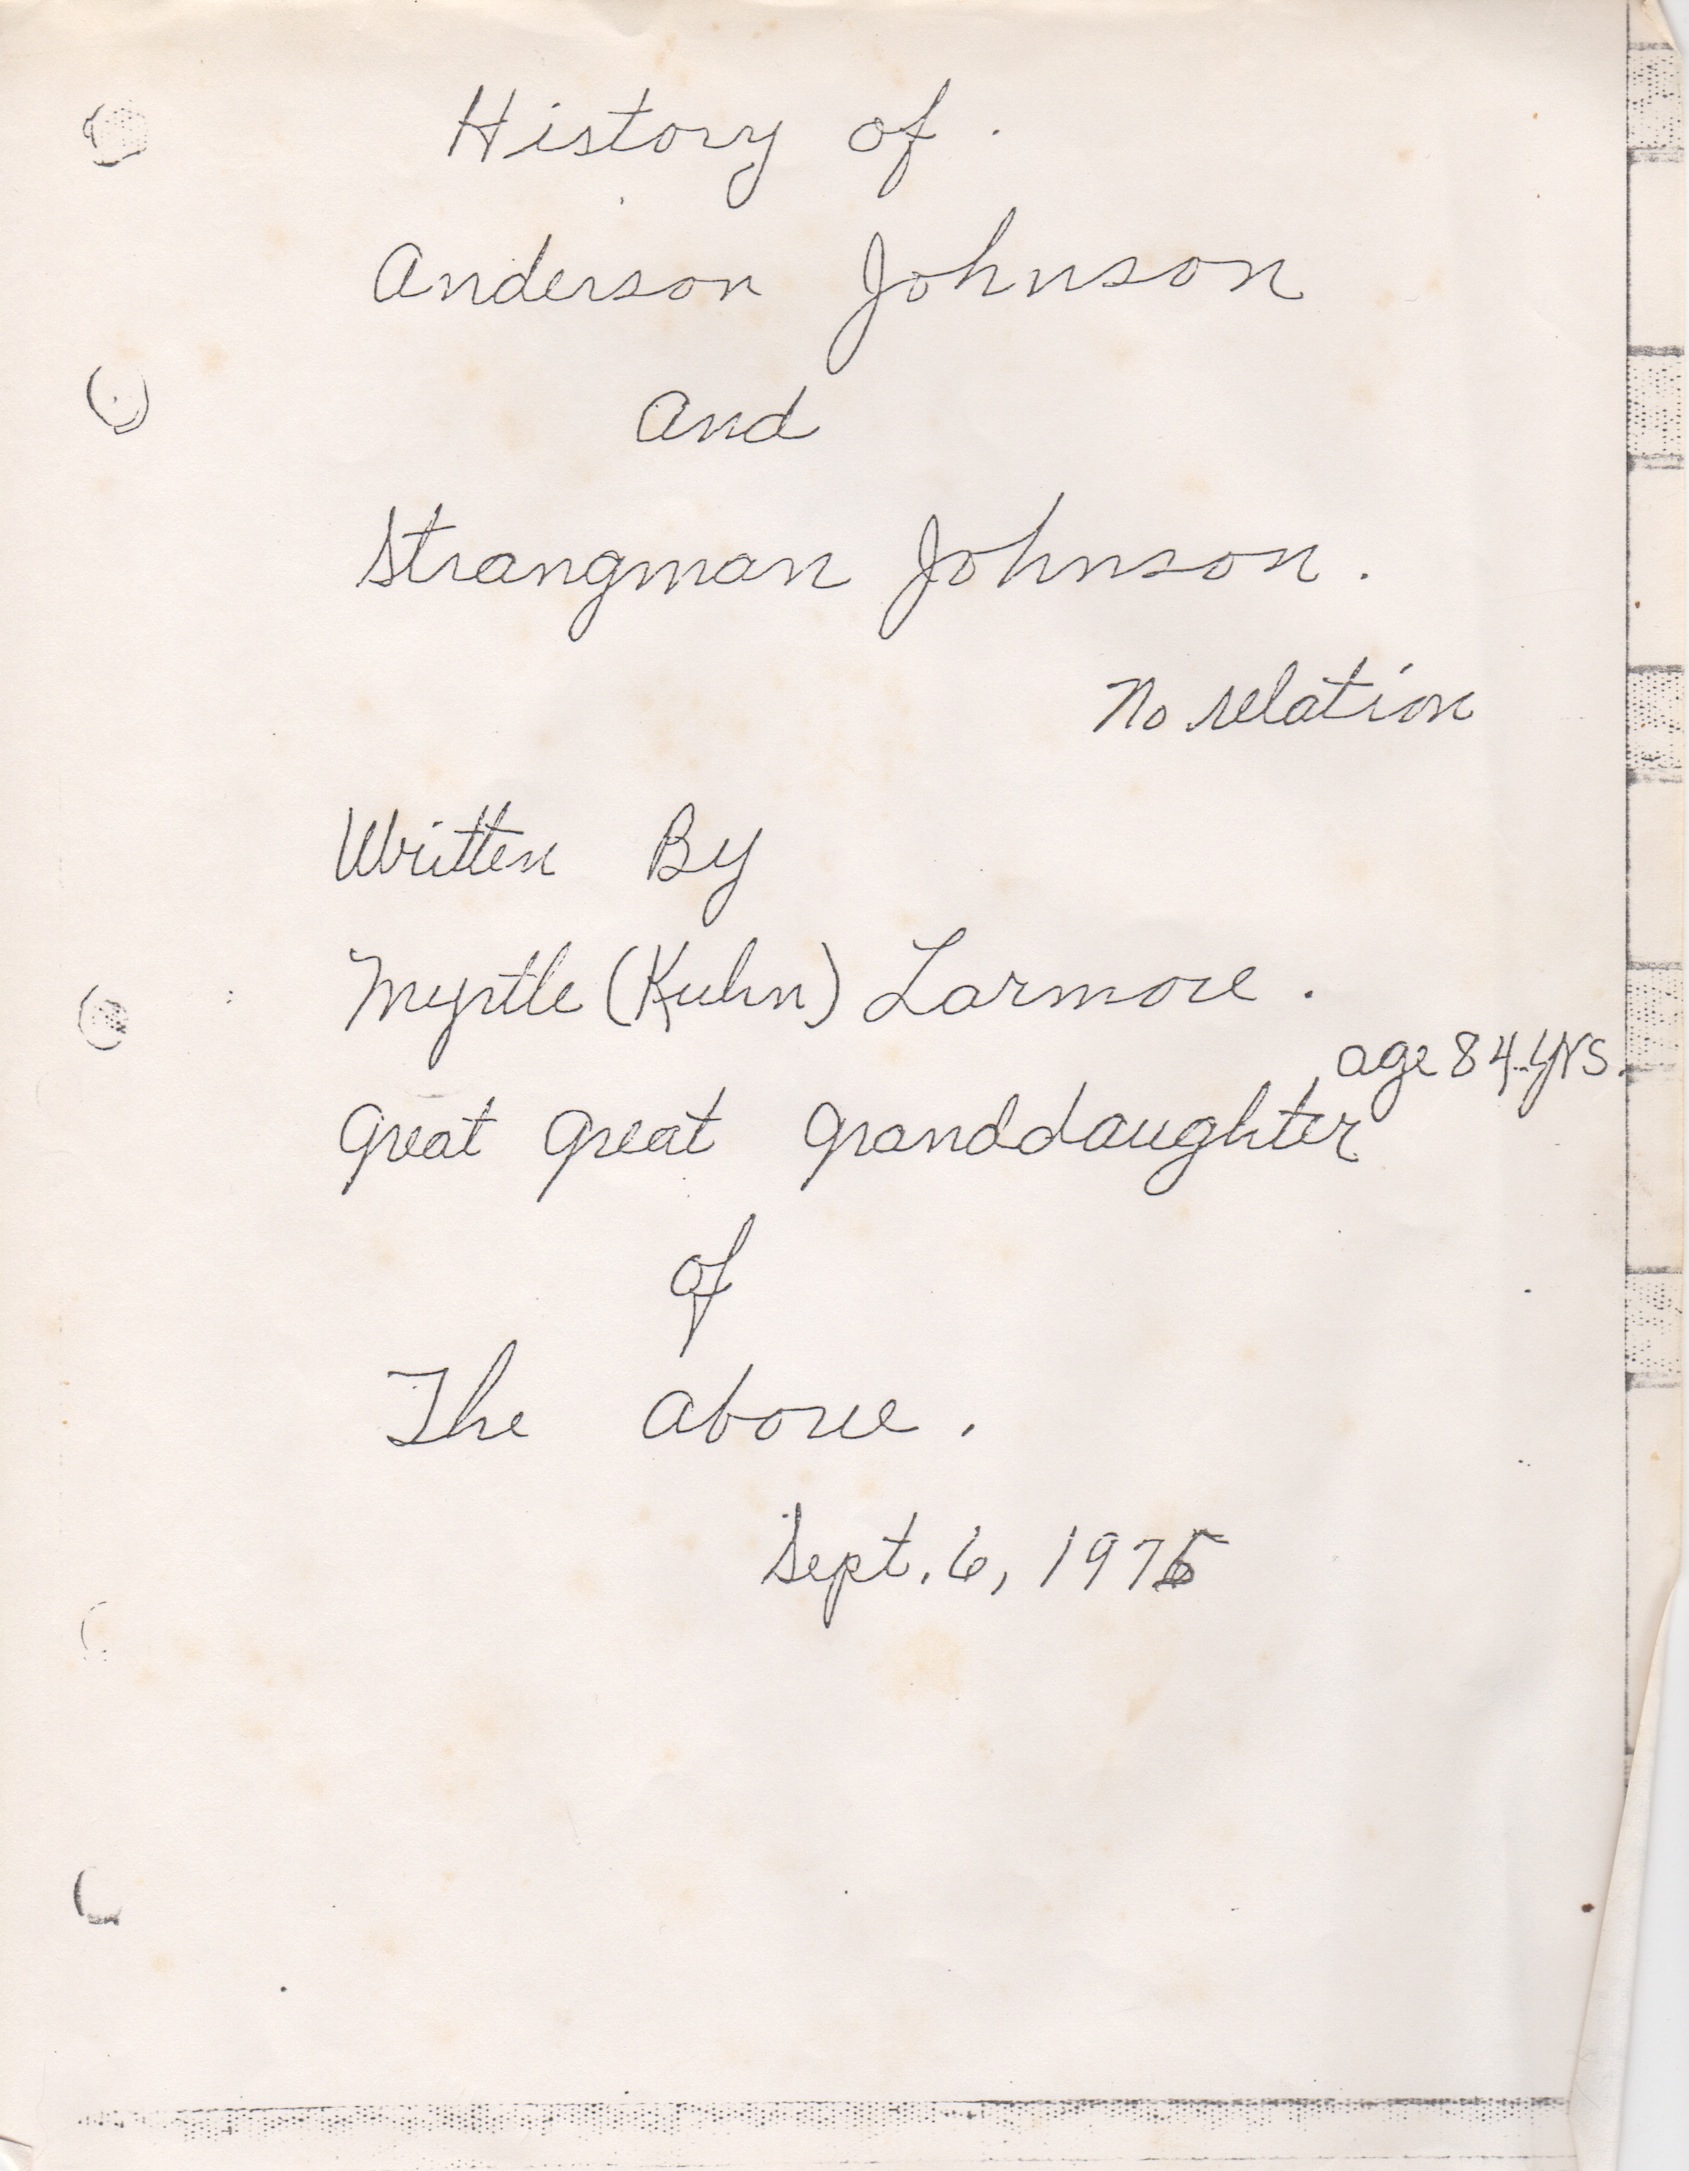 History of.
Anderson Johnson
And
Strangman Johnson.
No relation
Written By
Myrtle (Kuhn) Larmore.
age 84 yrs.
Great Great Granddaughter
of
The Above.
Sept. 6, 1975